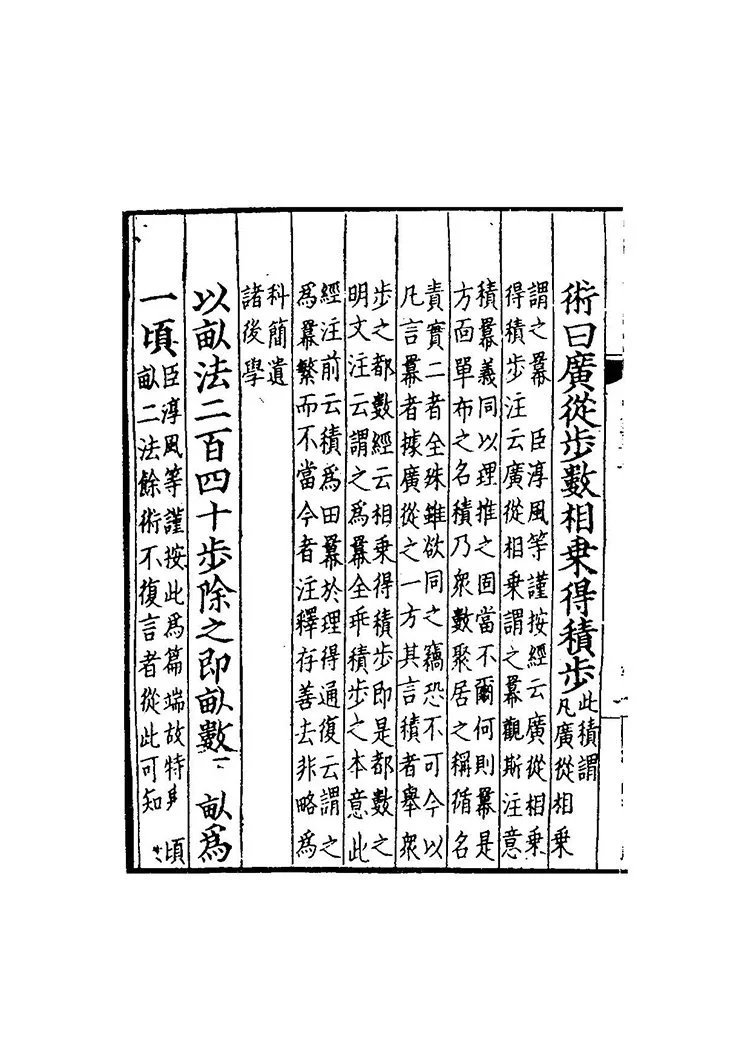 術曰廣從步數相乗得積步此積謂
凡廣從相乗
謂之羃 臣淳風等謹按經云廣從相乗
得積步注云廣從相乗謂之羃觀斯注意
積羃義同以理推之固當不爾何則羃是
方面單布之名積乃衆數聚居之稱循名
責實二者全殊雖欲同之竊恐不可今以
凡言羃者據廣從之一方其言積者舉衆
步之都數經云相乗得積步即是都數之
明文注云謂之爲羃全乖積步之本意此
經注前云積爲田羃於理得通復云謂之
爲羃繁而不當今者注釋存善去非略爲
科簡遺
諸後學
以畝法二百四十步除之即畝數 畝爲
一頃臣淳風等謹按此爲篇端故特 頃
畝二法餘術不復言者從此可知